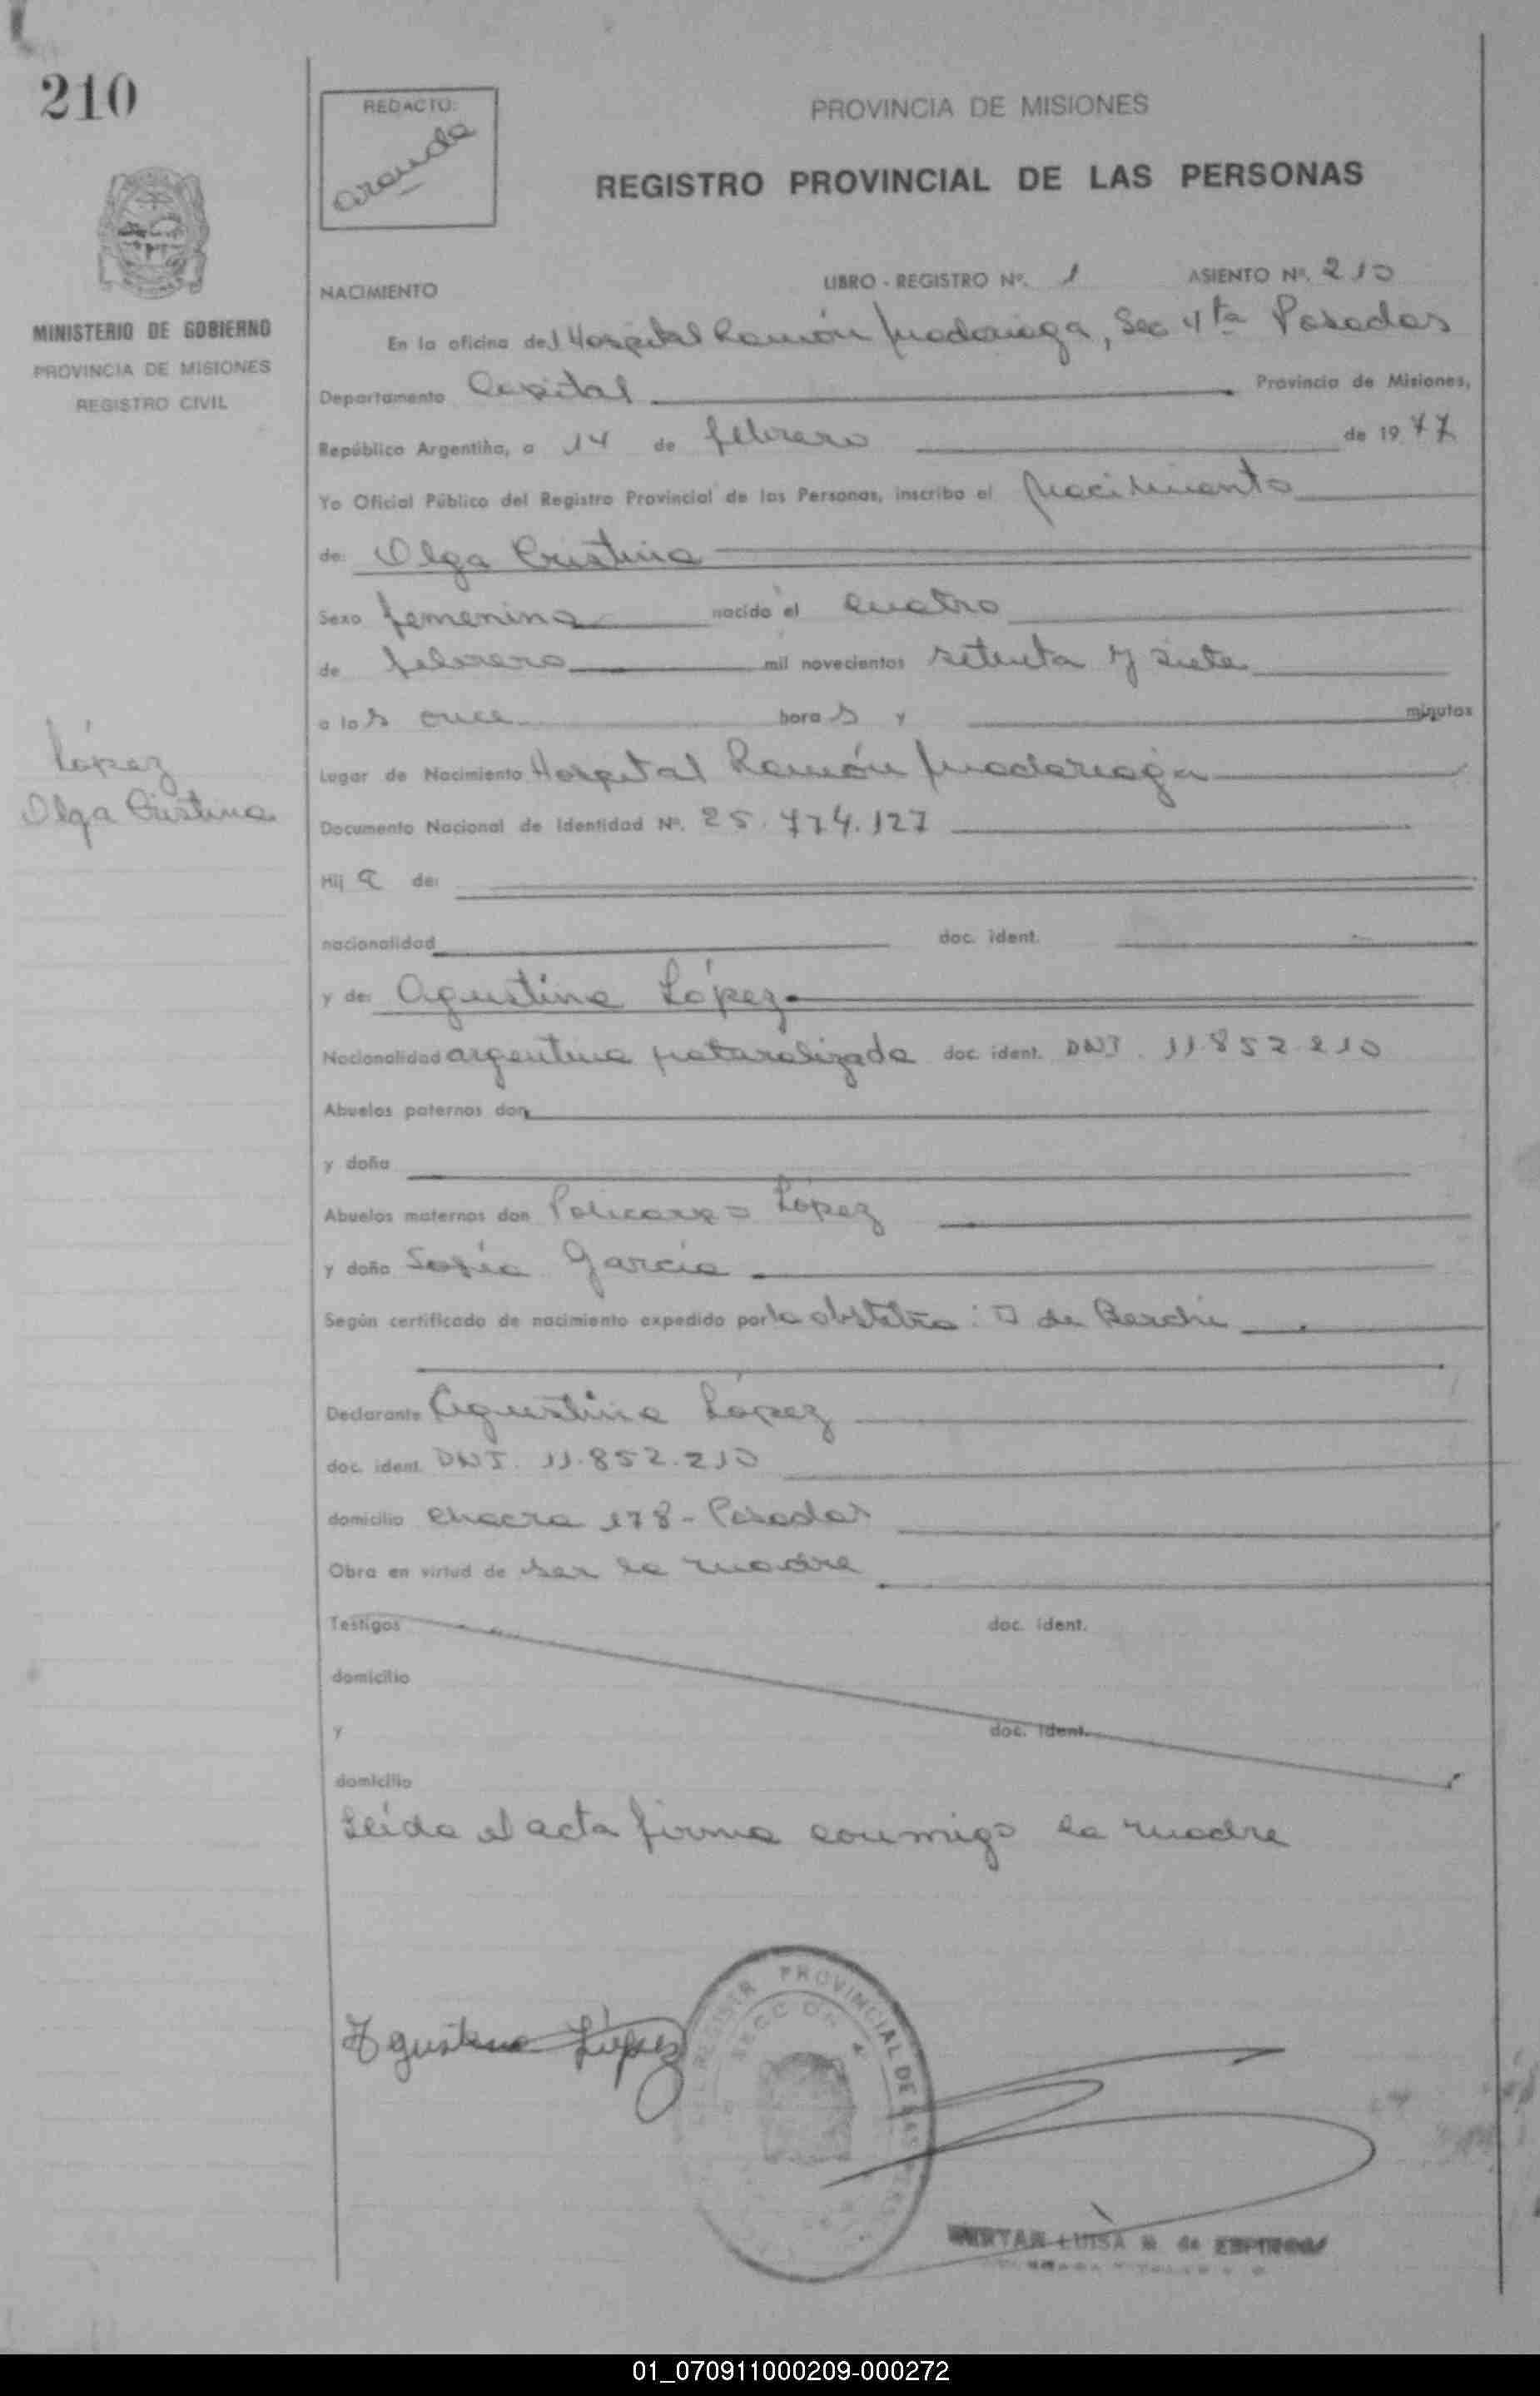 210
REDACTO:
aranda
PROVINCIA DE MISIONES
REGISTRO PROVINCIAL DE LAS PERSONAS
MINISTERIO DE GOBIERNO
PROVINCIA DE MISIONES
REGISTRO CIVIL
NACIMIENTO LIBRO - REGISTRO Nº. 1 ASIENTO Nº. 210
En la oficina del Hospital Ramón Madariaga, Sec 4ta Posadas
Departamento Capital Provincia de Misiones,
República Argentina, a 14 de febrero de 1977
Yo Oficial Público del Registro Provincial de las Personas, inscribo el nacimiento
de: Olga Cristina
Sexo femenino nacido el cuatro
de febrero mil novecientos setenta y siete
a las once horas y minutos
López
Olga Cristina
Lugar de Nacimiento Hospital Ramón Madariaga
Documento Nacional de Identidad Nº. 25.474.127
Hija de:
nacionalidad doc. ident.
y de: Agustina López
Nacionalidad argentina naturalizada doc. ident. DNI. 11.852.210
Abuelos paternos don
y doña
Abuelos maternos don Policarpo López
y doña Sofía García
Según certificado de nacimiento expedido por la obstetra: de
Declarante Agustina López
doc. ident. DNI. 11.852.210
domicilio chacra 178 - Posadas
Obra en virtud de ser la madre
Testigos doc. ident.
domicilio
y doc. ident.
domicilio
Leída el acta firma conmigo la madre
Agustina López
PROVINCIAL DE LAS
SECCION 4
LUISA de
01_070911000209-000272